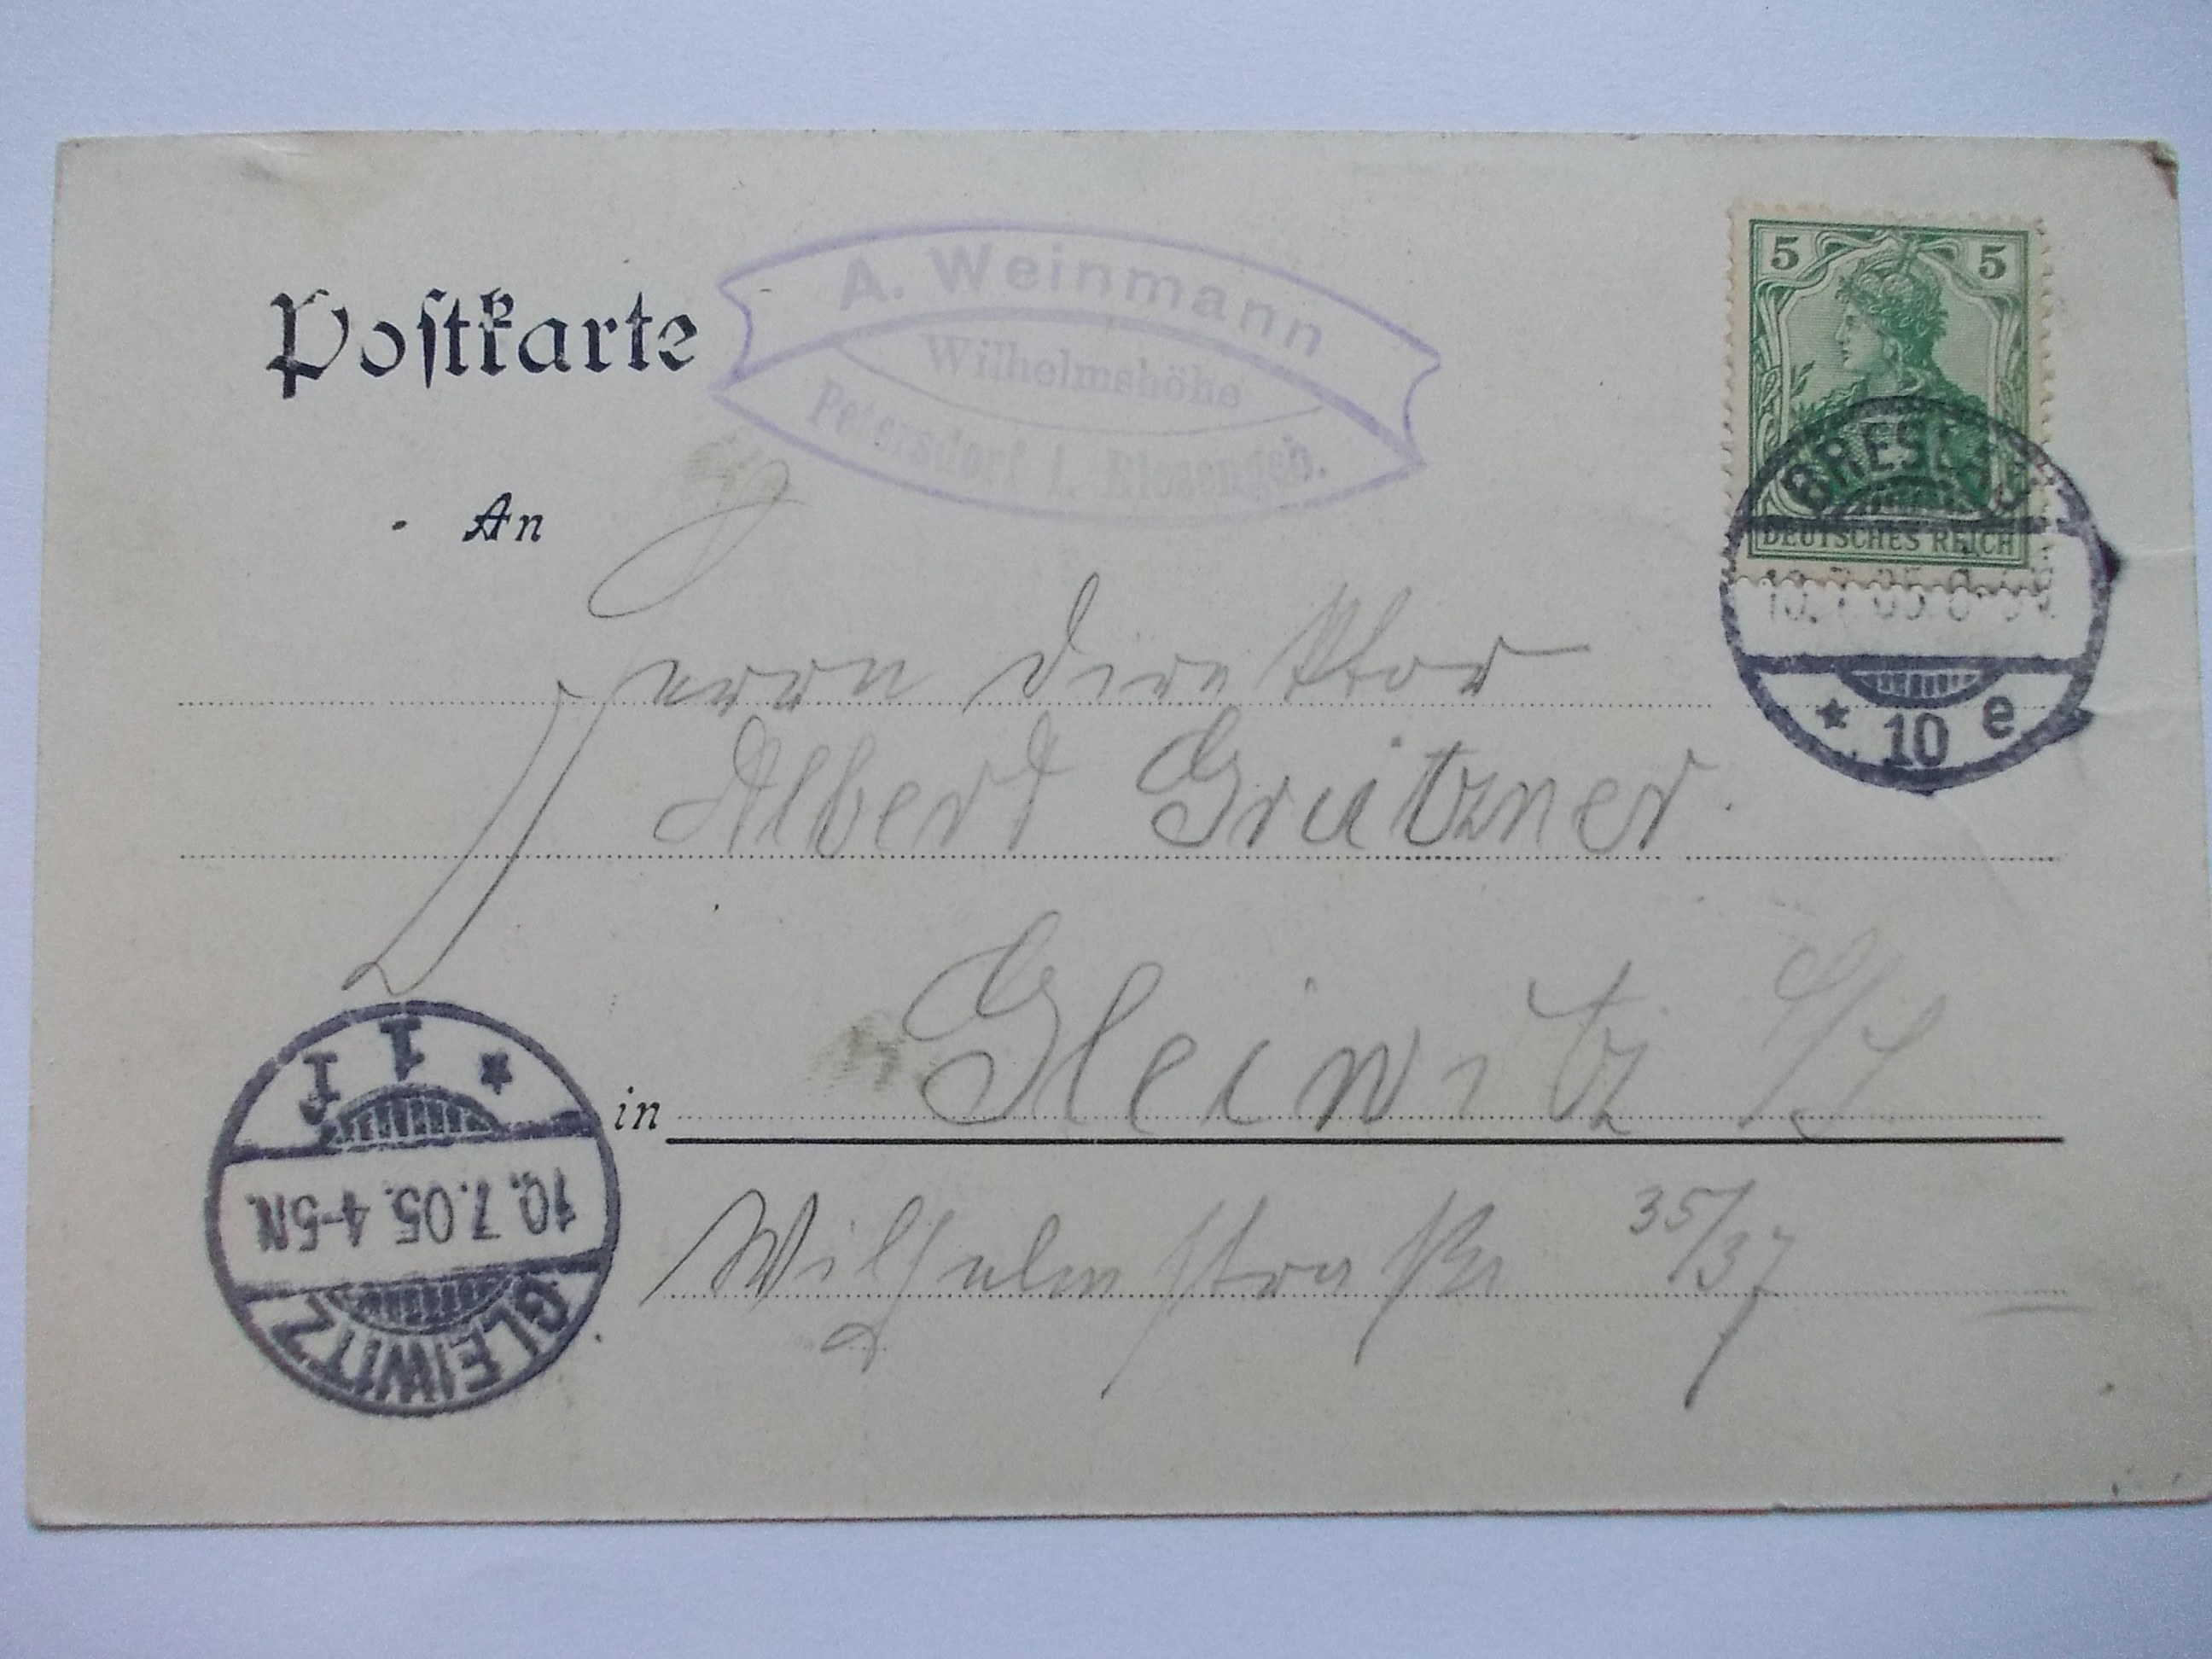 Postkarte
A. Weinmann
Wilhelmshöhe
Petersdorf i. Riesengeb.
5 5
DEUTSCHES REICH
BRESLAU
10. 7 05
* 10 e
An
Herrn Direktor
Albert Grützner.
in Gleiwitz O/S
Wilhelmstraße 35/37
GLEIWITZ
10. 7.05. 4-5N.
* 1